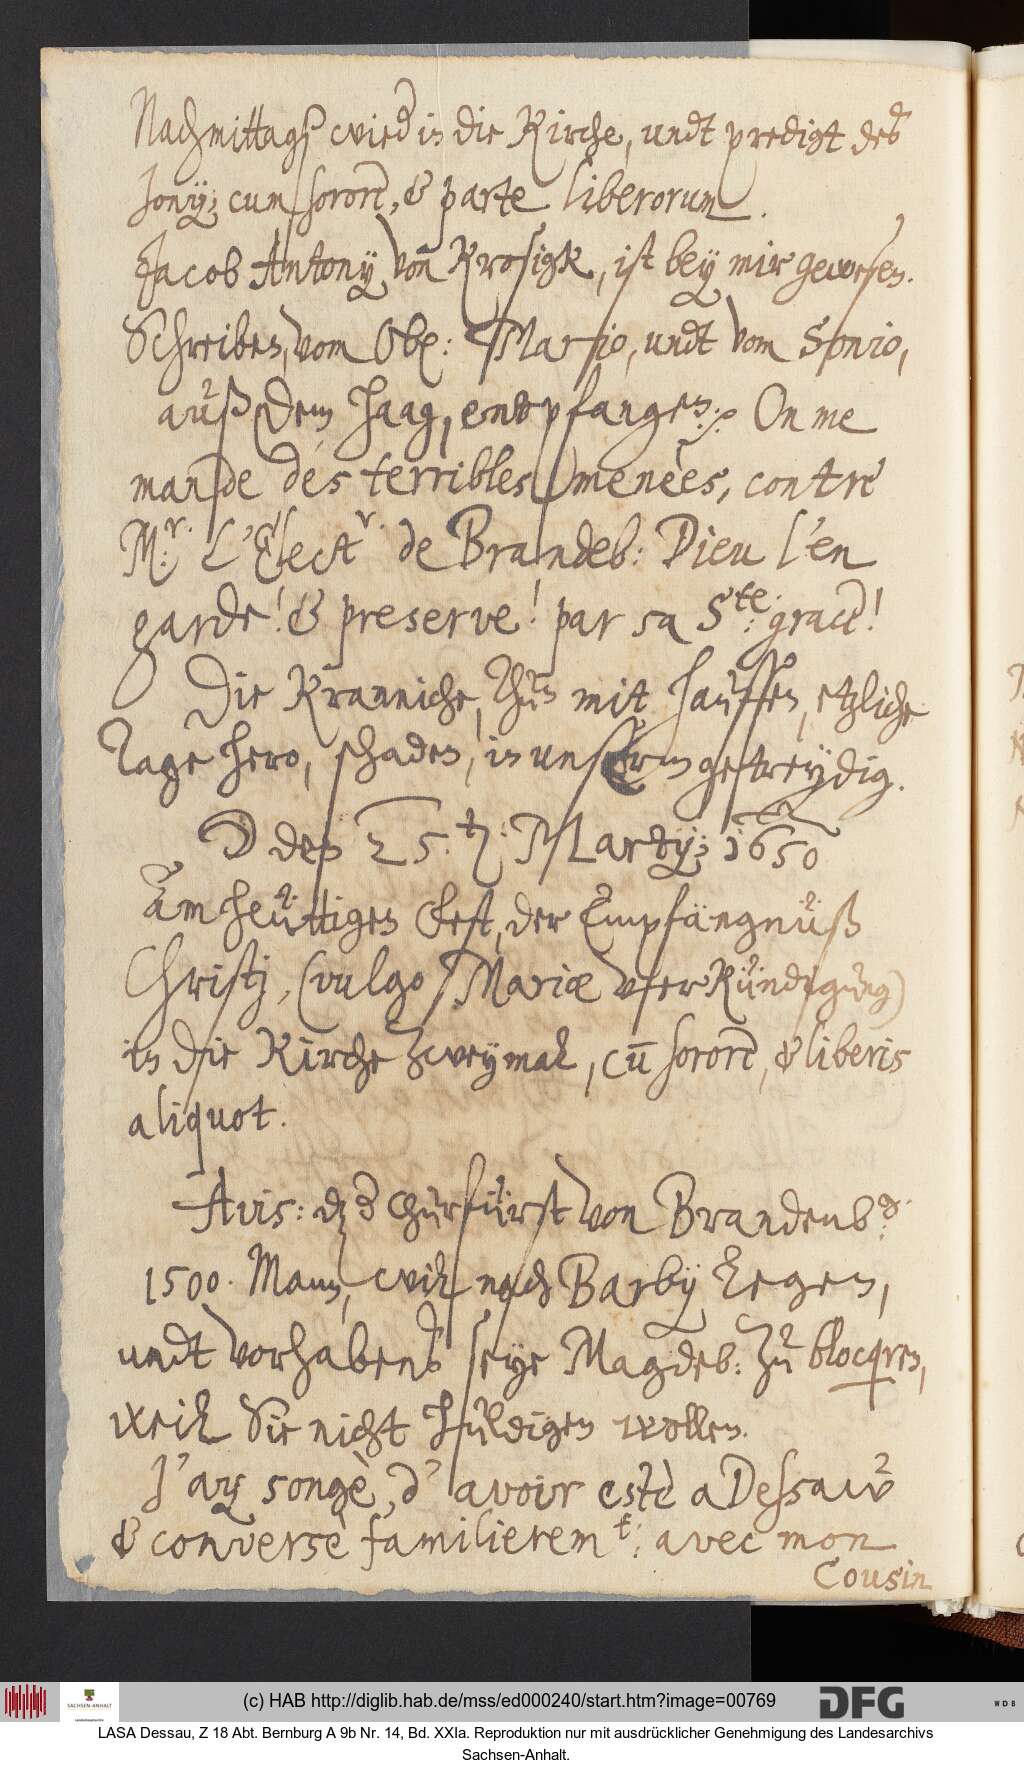 Nachmittagß wied in die Kirche, undt predigt des
Jonij; cum sorore, & parte liberorum.
Jacob Antony von Krosigk, ist bey mir gewesen.
Schreiben, vom Ob: Mario, undt vom Sonio,
auß dem Haag, entpfangen. On me
mande des terribles menèes, contre
M:r. L'Elect.r de Brandeb: Dieu l'en
garde! & preserve! par sa S:te grace!
Die Kranniche, thun mit hauffen, etzliche
Tage hero, schaden, in unserm getreydig.
☽ den 25.ten: Martzij; 1650
Am heüttigen Fest, der Empfängnüß
Christj, (vulgo Mariæ verKündigung)
in die Kirche zweymal, cū sorore, & liberis
aliquot.
Avis: dz der Churfürst von Brandenb:
1500. Mann, will nach Barby legen,
undt vorhabens seye Magdeb: zu blocqren,
weil Sie nicht huldigen wollen.
J'ay songè, d'avoir estè a Dessaw
& conversè familierem:t avec mon
Cousin
(c) HAB http://diglib.hab.de/mss/ed000240/start.htm?image=00769
SACHSEN-ANHALT
DFG
WDB
LASA Dessau, Z 18 Abt. Bernburg A 9b Nr. 14, Bd. XXIa. Reproduktion nur mit ausdrücklicher Genehmigung des Landesarchivs
Sachsen-Anhalt.